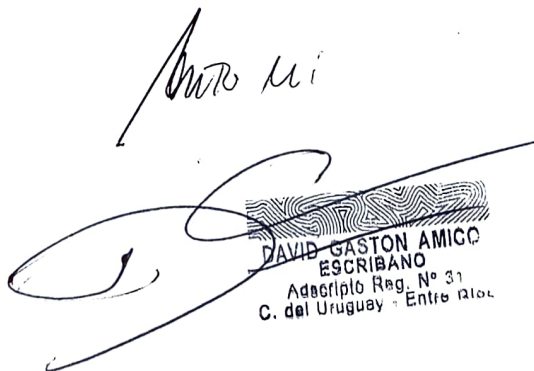 Ante Mi
DAVID GASTON AMICO
ESCRIBANO
Adscripto Reg. Nº 31
C. del Uruguay - Entre Ríos